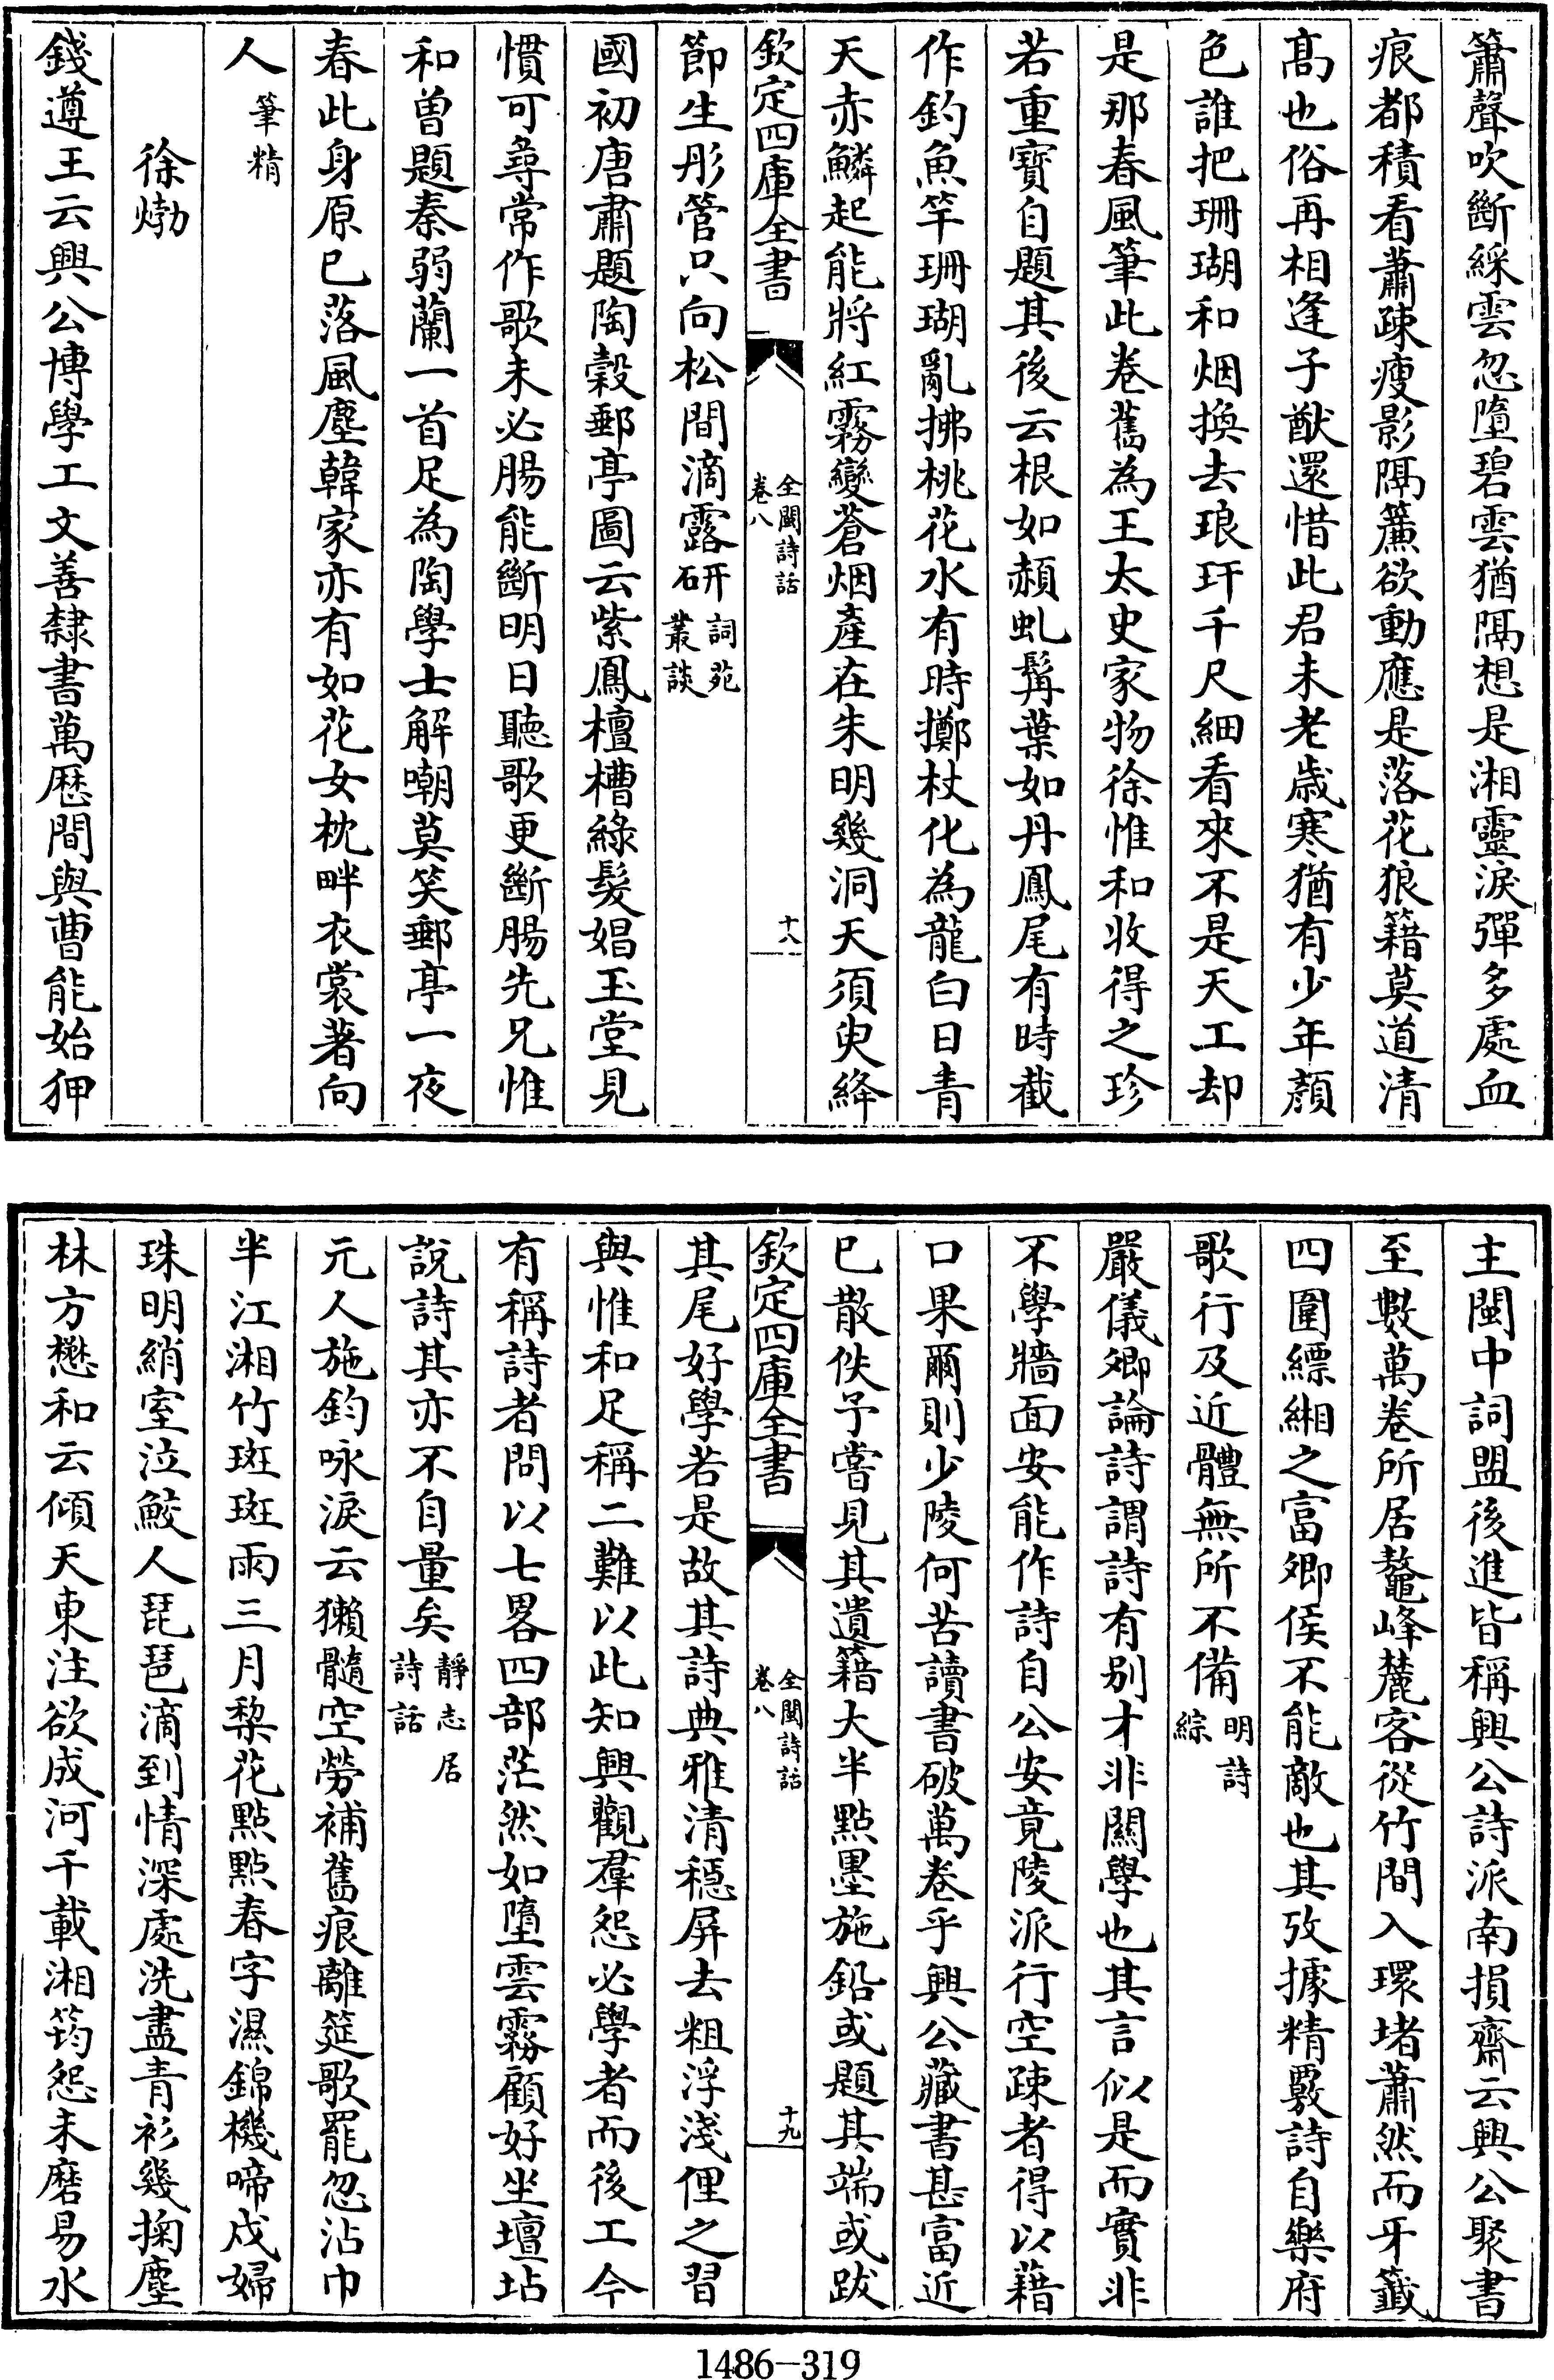 簫聲吹斷綵雲忽墮碧雲猶隔想是湘靈淚彈多處血
痕都積看蕭疎瘦影隔簾欲動應是落花狼籍莫道清
髙也俗再相逢子猷還惜此君未老歳寒猶有少年顔
色誰把珊瑚和烟換去琅玕千尺細看來不是天工却
是那春風筆此卷舊為王太史家物徐惟和收得之珍
若重寳自題其後云根如頳虬髯葉如丹鳳尾有時截
作釣魚竿珊瑚亂拂桃花水有時擲杖化為龍白日青
天赤鱗起能將紅霧變蒼烟產在朱明幾洞天須臾絳
欽定四庫全書
全閩詩話
卷八
十八
節生彤管只向松間滴露研石詞苑叢談
國初唐肅題陶穀郵亭圖云紫鳳檀槽綠髮娼玉堂見
慣可尋常作歌未必腸能斷明日聽歌更斷腸先兄惟
和曽題秦弱蘭一首足為陶學士解嘲莫笑郵亭一夜
春此身原已落風塵韓家亦有如花女枕畔衣裳著向
人筆精
徐𤊹
錢遵王云興公博學工文善隸書萬厯間與曹能始狎
主閩中詞盟後進皆稱興公詩派南損齋云興公聚書
至數萬卷所居鼇峰麓客從竹間入環堵蕭然而牙籤
四圍縹緗之富卿侯不能敵也其攷據精覈詩自樂府
歌行及近體無所不備明詩綜
嚴儀卿論詩謂詩有别才非闗學也其言似是而實非
不學牆面安能作詩自公安竟陵派行空疎者得以藉
口果爾則少陵何苦讀書破萬卷乎興公藏書甚富近
已散佚予嘗見其遺籍大半點墨施鉛或題其端或跋
欽定四庫全書
全閩詩話
卷八
十九
其尾好學若是故其詩典雅清穩屏去粗浮淺俚之習
與惟和足稱二難以此知興觀羣怨必學者而後工今
有稱詩者問以七畧四部茫然如墮雲霧顧好坐壇坫
說詩其亦不自量矣靜志居詩話
元人施鈞咏淚云獺髓空勞補舊痕離筵歌罷忽沾巾
半江湘竹斑斑雨三月棃花點點春字濕錦機啼戍婦
珠明綃室泣鮫人琵琶滴到情深處洗盡青衫幾掬塵
林方懋和云傾天東注欲成河千載湘筠怨未磨易水
1486-319